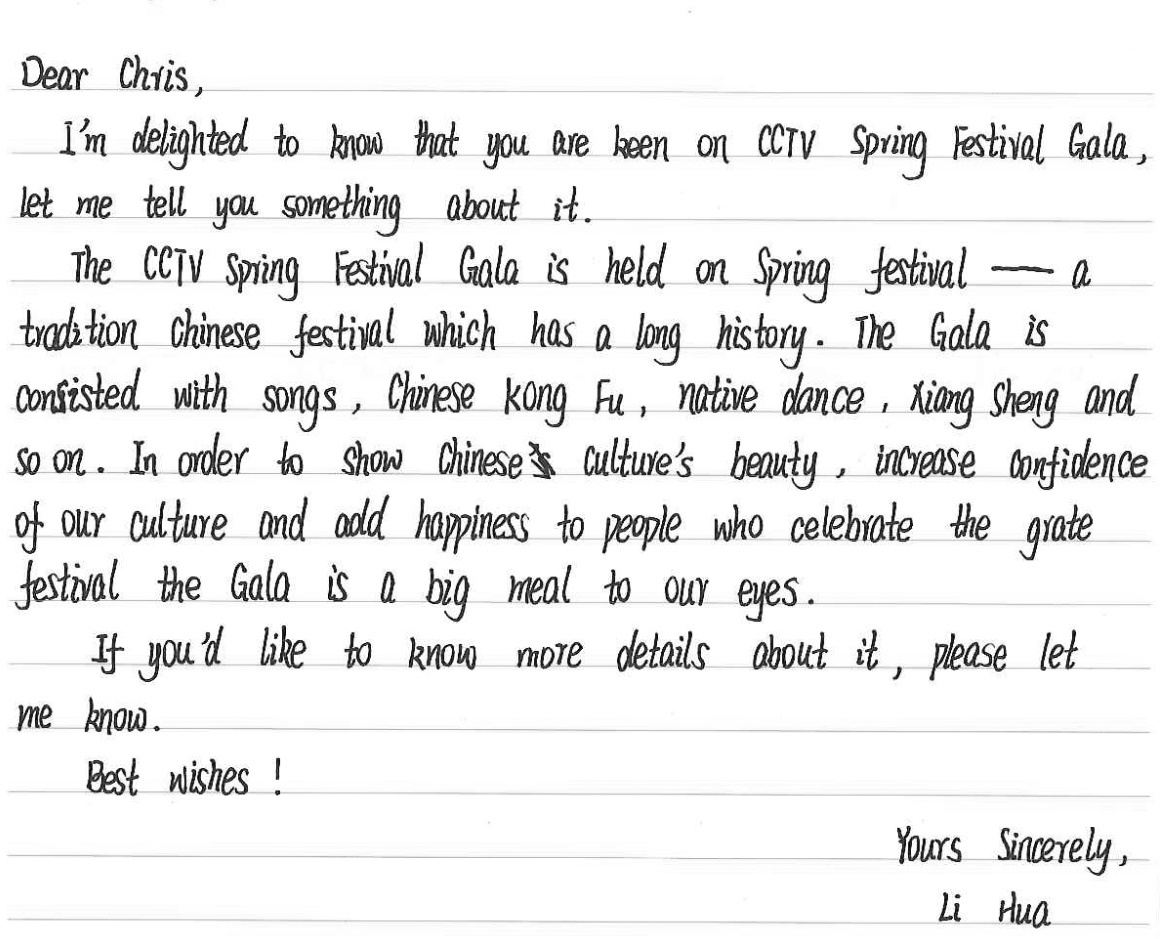 Dear Chris,
I'm delighted to know that you are keen on CCTV Spring Festival Gala,
let me tell you something about it.
The CCTV Spring Festival Gala is held on Spring festival — a
tradition Chinese festival which has a long history. The Gala is
consisted with songs, Chinese Kong Fu, native dance, Xiang Sheng and
so on. In order to show Chinese culture's beauty, increase confidence
of our culture and add happiness to people who celebrate the grate
festival the Gala is a big meal to our eyes.
If you'd like to know more details about it, please let
me know.
Best wishes!
Yours Sincerely,
Li Hua